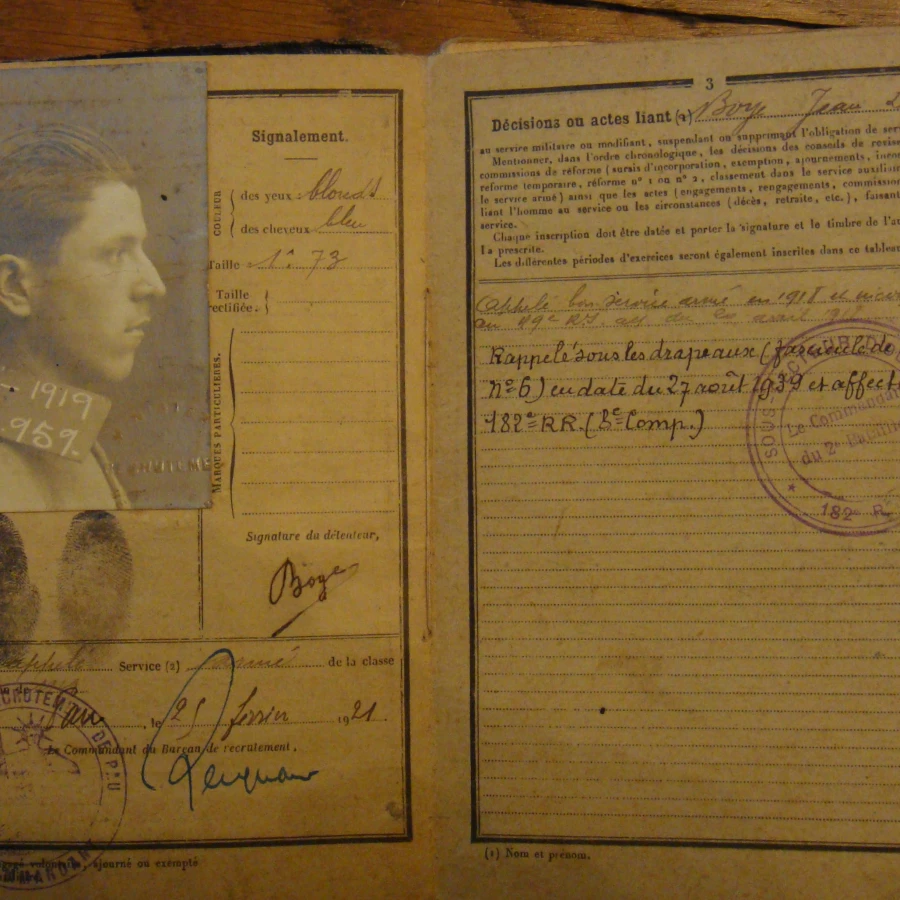 Signalement.
COULEUR
des yeux blonds
des cheveux bleu
Taille 1m 73
Taille
rectifiée.
MARQUES PARTICULIÈRES.
1919
959.
Signature du détenteur,
Boye
appelé Service (2) armé de la classe
Pau, le 25 février 1921.
Le Commandant du Bureau de recrutement,
RECRUTEMENT DE PAU
COMMANDANT
ajourné ou exempté
3
Décisions ou actes liant (1) Boye Jean
au service militaire ou modifiant, suspendant ou supprimant l'obligation de
Mentionner, dans l'ordre chronologique, les décisions des conseils de
commissions de réforme (sursis d'incorporation, exemption, ajournements,
réforme temporaire, réforme n° 1 ou n° 2, classement dans le service
le service armé) ainsi que les actes (engagements, rengagements,
liant l'homme au service ou les circonstances (décès, retraite, etc.), faisant
service.
Chaque inscription doit être datée et porter la signature et le timbre de
l'a prescrite.
Les différentes périodes d'exercices seront également inscrites dans ce
Appelé bon service armé en 1918 et
au 49e R.I.
Rappelé sous les drapeaux (fascicule de
n° 6) en date du 27 août 1939 et
182e RR. (8e Comp.)
Le Commandant
du 2e
182e R
(1) Nom et prénom.